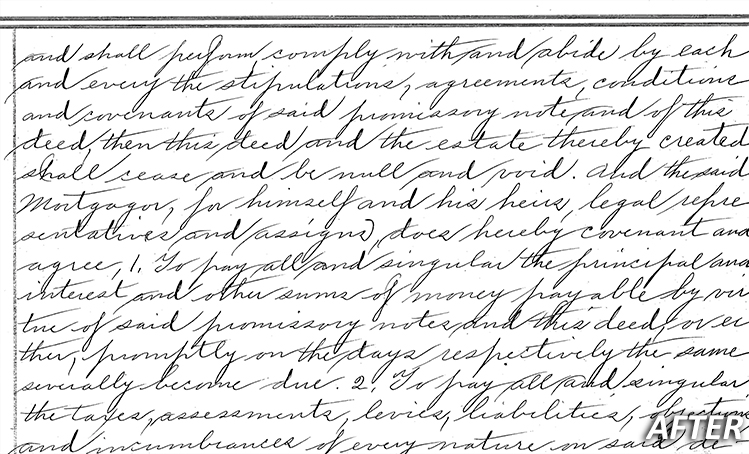 and shall perform, comply with and abide by each
and every the stipulations, agreements, conditions
and covenants of said promissory note and of this
deed, then this deed and the estate thereby created
shall cease and be null and void. And the said
Mortgagor, for himself and his heirs, legal repre
sentatives and assigns, does hereby covenant and
agree, 1. To pay all and singular the principal and
interest and other sums of money payable by vir
tue of said promissory notes and this deed, or ei
ther, promptly on the days respectively the same
severally become due. 2. To pay all and singular
the taxes, assessments, levies, liabilities,
and incumbrances of every nature on said de
AFTER